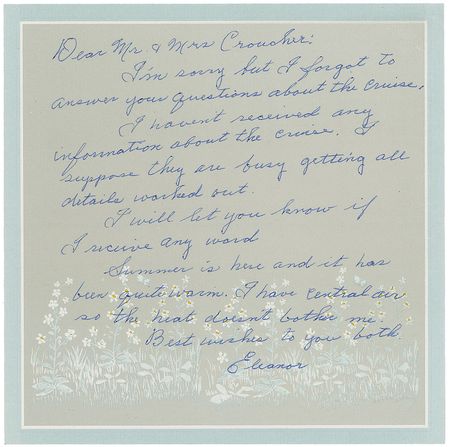 Dear Mr. & Mrs Croucher:
I'm sorry but I forgot to
answer your questions about the cruise.
I havent received any
information about the cruise. I
suppose they are busy getting all
details worked out.
I will let you know if
I receive any word
Summer is here and it has
been quite warm. I have central air
so the heat doesn't bother me
Best wishes to you both
Eleanor